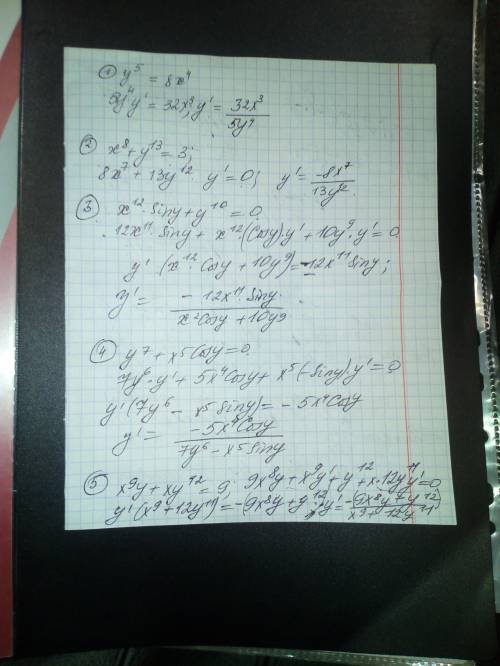 ① y⁵ = 8x⁴
5y⁴y' = 32x³; y' = 32x³/5y⁴
② x⁸ + y¹³ = 3;
8x⁷ + 13y¹² y' = 0; y' = -8x⁷/13y¹²
③ x¹² · Siny + y¹⁰ = 0
12x¹¹ · Siny + x¹² · (Cosy) · y' + 10y⁹ · y' = 0
y' (x¹² · Cosy + 10y⁹) = -12x¹¹ Siny;
y' = - 12x¹¹ · Siny / x² Cosy + 10y9
④ y⁷ + x⁵ Cosy = 0
7y⁶ · y' + 5x⁴ Cosy + x⁵ (-Siny) · y' = 0
y' (7y⁶ - x⁵ Siny) = - 5x⁴ Cosy
y' = -5x⁴ Cosy / 7y⁶ - x⁵ Siny
⑤ x⁹y + xy¹² = 9; 9x⁸y + x⁹y' + y¹² + x · 12y¹¹y' = 0
y' (x⁹ + 12y¹¹) = -(9x⁸y + y¹²); y' =